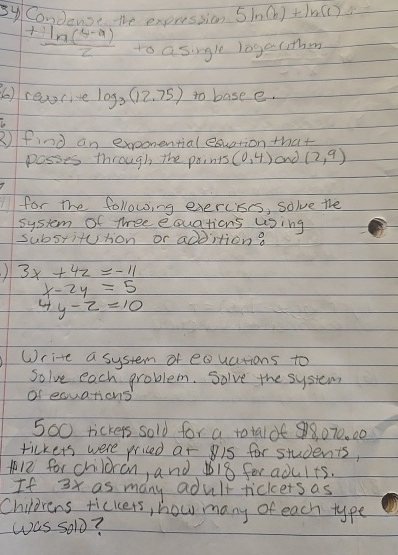 34) Condense the expression 5 ln(b) + ln(c)
+ ln(4-a)
2
to a single logarithm
6) rewrite log3 (12.75) to base e.
2) find an exponential equation that
passes through the points (0,4) and (2,9)
for the following exercises, solve the
system of three equations using
substitution or addition:
) 3x + 4z = -11
x - 2y = 5
4y - z = 10
Write a system of equations to
solve each problem. Solve the system
of equations
500 tickets sold for a total of $8,070.00
tickets were priced at $15 for students,
$12 for children, and $18 for adults.
If 3x as many adult tickets as
Childrens tickets, how many of each type
was sold?